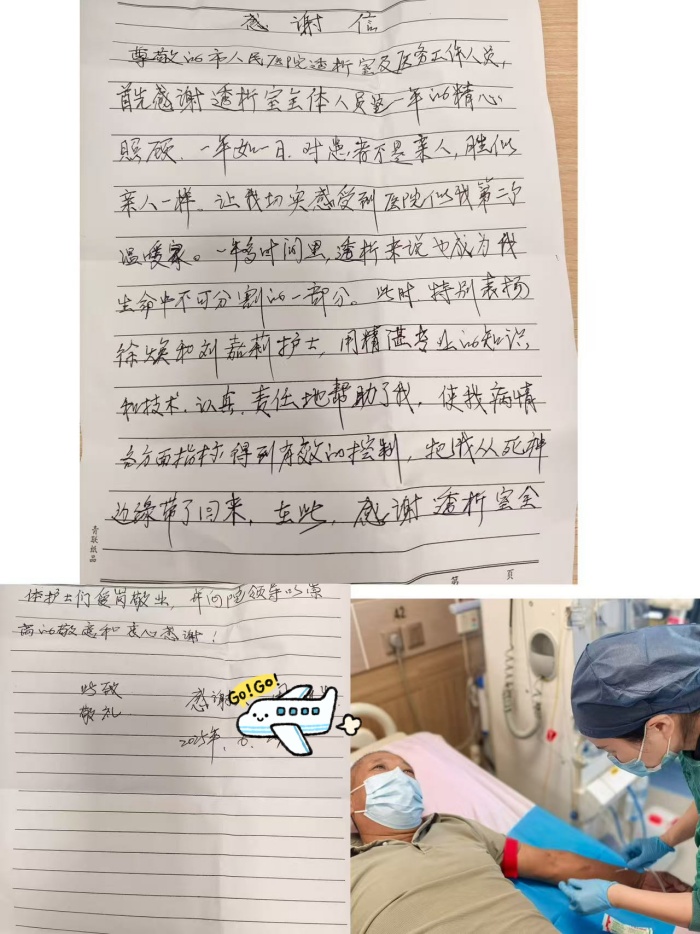 感谢信
尊敬的市人民医院透析室及医务工作人员,
首先感谢透析室全体人员这一年的精心
照顾、一年如一日、对患者不是亲人,胜似
亲人一样、让我切实感受到医院似我第二个
温暖家。一年多时间里,透析来说也成为我
生命中不可分割的一部分。此时,特别表扬
徐焕和刘嘉莉护士,用精湛专业的知识,
和技术、认真、责任地帮助了我,使我病情
各方面指标得到有效的控制,把我从死神
边缘带了回来,在此,感谢透析室全
青联纸品
第 页
体护士们爱岗敬业,并向院领导以崇
高的敬意和衷心感谢!
此致
敬礼
感谢
GO! GO!
2025年
A2